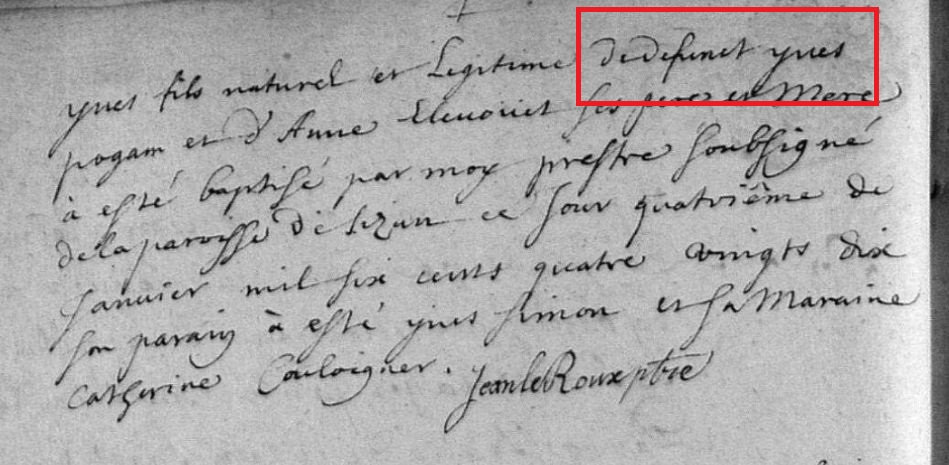 yves fils naturel et Legitime de defunct yves
pogam et d'Anne Elevouet ses pere et Mere
à esté baptisé par moy prestre soubsigné
de la paroisse de sizun ce jour quatriéme de
janvier mil six cents quatre vingts dix
son parain à esté yves simon et sa Maraine
Catherine Couloigner. Jean le Roux ptre